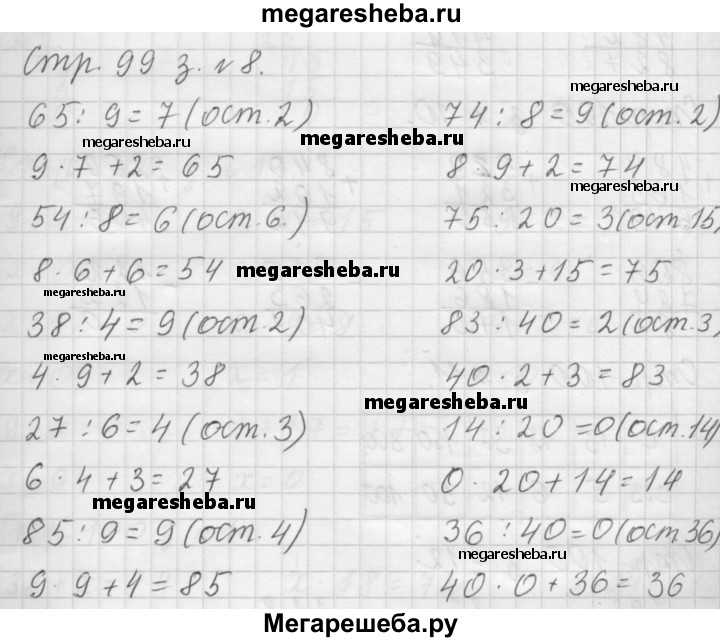 megaresheba.ru
Стр. 99 з. №8.
65 : 9 = 7 (ост. 2)
megaresheba.ru
9 · 7 + 2 = 65
54 : 8 = 6 (ост. 6.)
8 · 6 + 6 = 54
megaresheba.ru
megaresheba.ru
38 : 4 = 9 (ост. 2)
megaresheba.ru
4 · 9 + 2 = 38
27 : 6 = 4 (ост. 3)
6 · 4 + 3 = 27
megaresheba.ru
85 : 9 = 9 (ост. 4)
9 · 9 + 4 = 85
megaresheba.ru
74 : 8 = 9 (ост. 2)
megaresheba.ru
8 · 9 + 2 = 74
megaresheba.ru
75 : 20 = 3 (ост. 15)
20 · 3 + 15 = 75
83 : 40 = 2 (ост. 3)
40 · 2 + 3 = 83
megaresheba.ru
14 : 20 = 0 (ост. 14)
0 · 20 + 14 = 14
36 : 40 = 0 (ост 36)
megaresheba.ru
40 · 0 + 36 = 36
Мегарешеба.ру